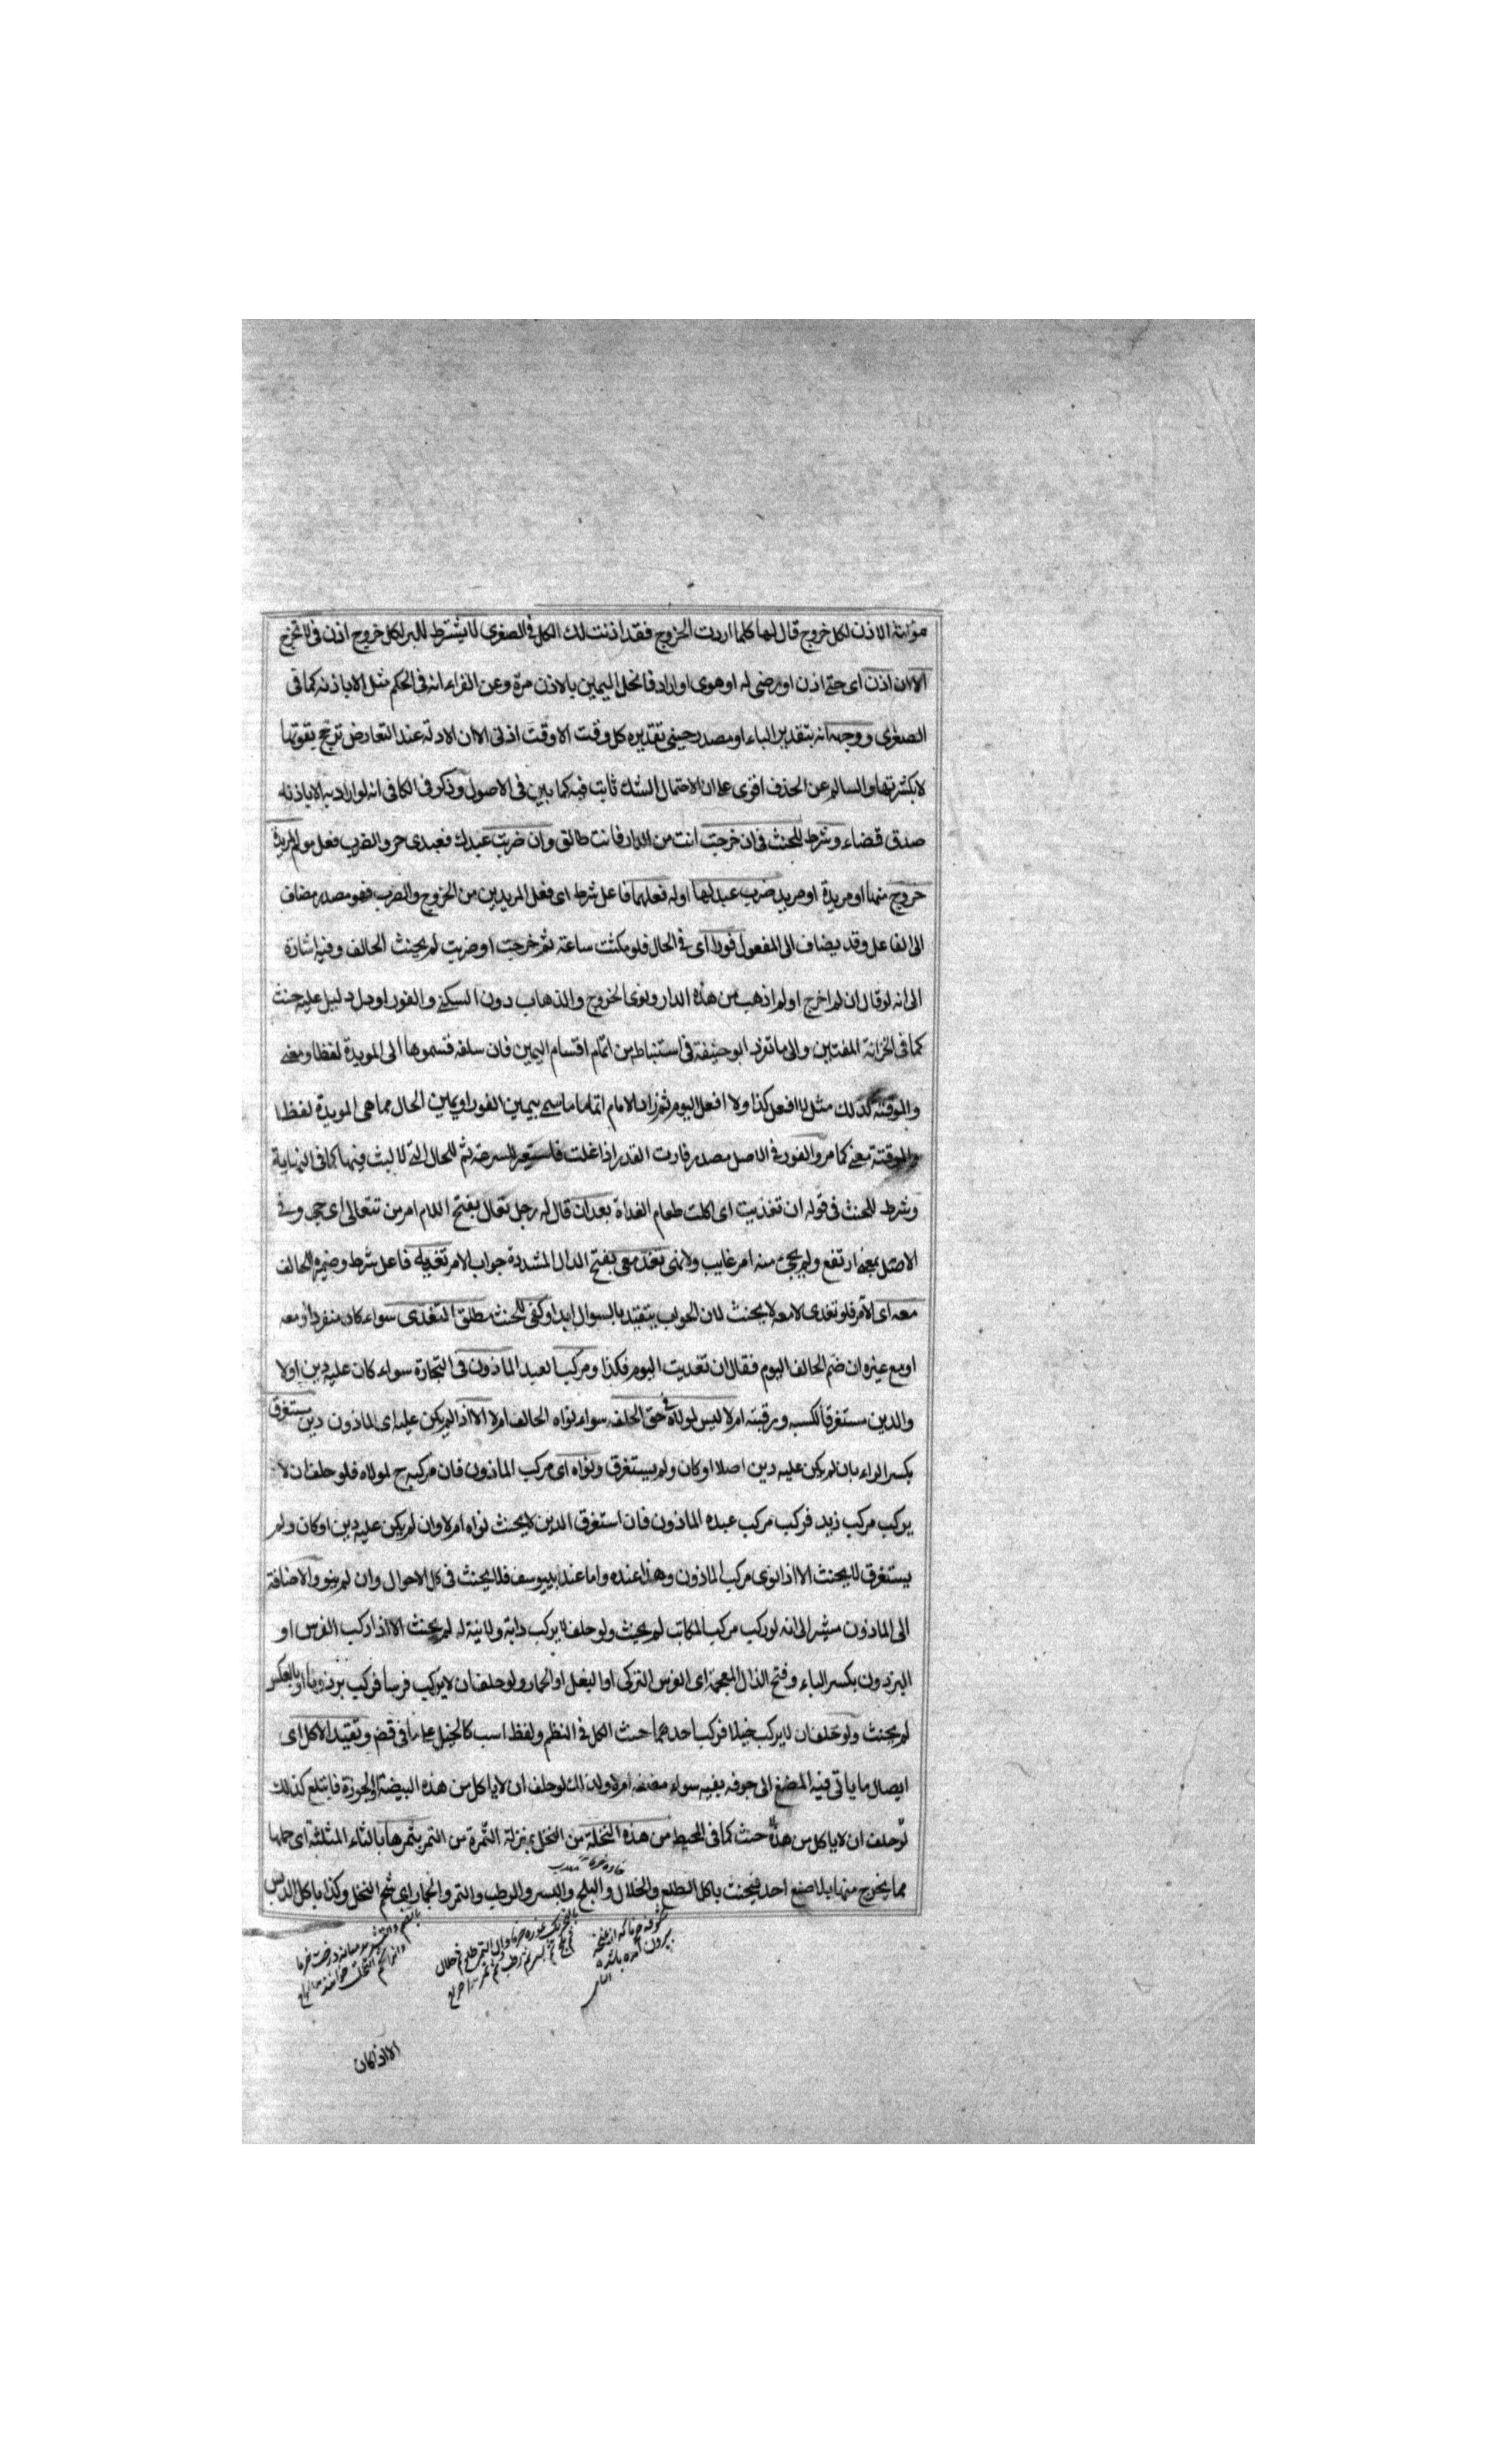 مؤانة الاذن لكل خروج قال لها كلما اردت الخروج فقد اذنت لك الكل في الصغرى لا يشترط للبر لكل خروج اذن في لا تخرج
الا ان اذن اى حتى اذن او رضى له او هوى او اراد فانحل اليمين بالاذن مرة وعن الفراء انه في الحكم مثل الا باذنه كما في
الصغرى ووجهه انه بتقدير الباء او مصدر حينى تقديره كل وقت الا وقت اذنى الا ان الادلة عند التعارض ترجح بقوتها
لا بكثرتها والسالم عن الحذف اقوى على ان الاحتمال الشك ثابت فيه كما بين في الاصول وذكر في الكافى انه لو اراد به الا باذنه
صدق قضاء وشرط للحنث في ان خرجت انت من الدار فانت طالق وان ضربت عبدك فعبدى حر والضرب فعل مولم لمريد
خروج منها او مريدة او مريد ضرب عبد لها او له فعلهما فاعل شرط اى فعل المريدين من الخروج والضرب فهو مصدر مضاف
الى الفاعل وقد يضاف الى المفعول فورا اى في الحال فلو مكثت ساعة ثم خرجت او ضربت لم يحنث الحالف وفيه اشارة
الى انه لو قال ان لم اخرج او لم اذهب من هذه الدار ونوى الخروج والذهاب دون السكنى والفور او دل دليل عليه حنث
كما في الخزانة المفتين والى ما تفرد ابو حنيفة في استنباط من اتمام اقسام اليمين فان سلفه قسموها الى المويدة لفظا ومعنى
والموقتة كذلك مثل لا افعل كذا ولا افعل اليوم ثم زاد الامام اتماما ما سمى بيمين الفور او يمين الحال مما هى المويدة لفظا
والموقتة معنى كما مر والفور في الاصل مصدر فارت القدر اذا غلت فاستعير للسرعة ثم للحال التى لا لبث فيها كما في النهاية
وشرط للحنث في قوله ان تغديت اى اكلت طعام الغداة بعد ان قال له رجل تعال بفتح اللام امر من تتعالى اى جى وفي
الاصل بمعنى ارتفع ولم يجئ منه امر غايب ولا نهى تغد معى بفتح الدال المشددة جواب الامر تغديه فاعل شرط وضميره للحالف
معه اى الآمر فلو تغدى لا معه لا يحنث لان الجواب يتقيد بالسوال ابدا وكفى للحنث مطلق التغدى سواء كان منفردا او معه
او مع غيره ان ضم الحالف اليوم فقال ان تغديت اليوم فكذا ومركب العبد الماذون في التجارة سواء كان عليه دين او لا
والدين مستغرقا لكسبه ورقبته ام لا ليس لمولاه في حق الحلف سواء نواه الحالف ام لا الا اذا لم يكن عليه اى الماذون دين مستغرق
بكسر الراء بان لم يكن عليه دين اصلا او كان ولم يستغرق ونواه اى مركب الماذون فان مركبه ح لمولاه فلو حلف ان لا
يركب مركب زيد فركب مركب عبده الماذون فان استغرق الدين لا يحنث نواه ام لا وان لم يكن عليه دين او كان ولم
يستغرق لا يحنث الا اذا نوى مركب الماذون وهذا عنده واما عند ابى يوسف فلا يحنث في كل الاحوال وان لم ينو والاضافة
الى الماذون مشير الى انه لو ركب مركب المكاتب لم يحنث ولو حلف لا يركب دابة ولا نية له لم يحنث الا اذا ركب الفرس او
البرذون بكسر الباء وفتح الذال المعجمة اى الفرس التركى او البغل او الحمار ولو حلف ان لا يركب فرسا فركب برذونا او بالعكس
لم يحنث ولو حلف ان لا يركب خيلا فركب احدهما حنث الكل في النظم ولفظ اسب كالخيل على ما في قض وتقيد الاكل اى
ايصال ما ياتى فيه المضغ الى جوفه بفيه سواء مضغه ام لا ولذلك لو حلف ان لا ياكل من هذه البيضة او الجوزة فابتلع كذلك
لو حلف ان لا ياكل من هذا حنث كما في المحيط من هذه النخلة من النخل بمنزلة التمرة من التمر بثمرها بالثاء المثلثة اى حملها
مما يخرج منها بلا صنع احد فيحنث باكل الطلع والخلال والبلح والبسر والرطب والتمر والجمار اى شحم النخل وكذا باكل الدبس
شكوفه خرما كه از غنچه
بيرون آمده باشد
الا اذا كان